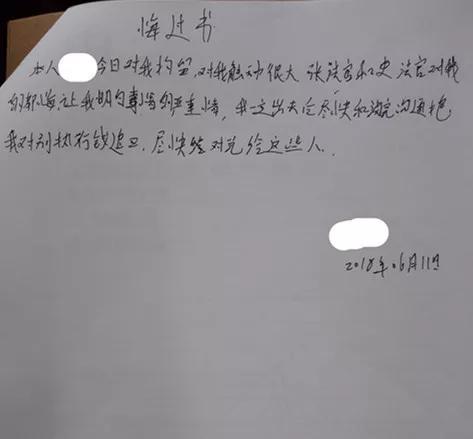 悔过书
本人 今日对我拘留,对我触动很大 张法官和史法官对我
的教诲让我明白事情的严重性,我一定出去后尽快和法院沟通把
我对别执行钱追回.尽快给对兑给这些人.
2018年06月11日